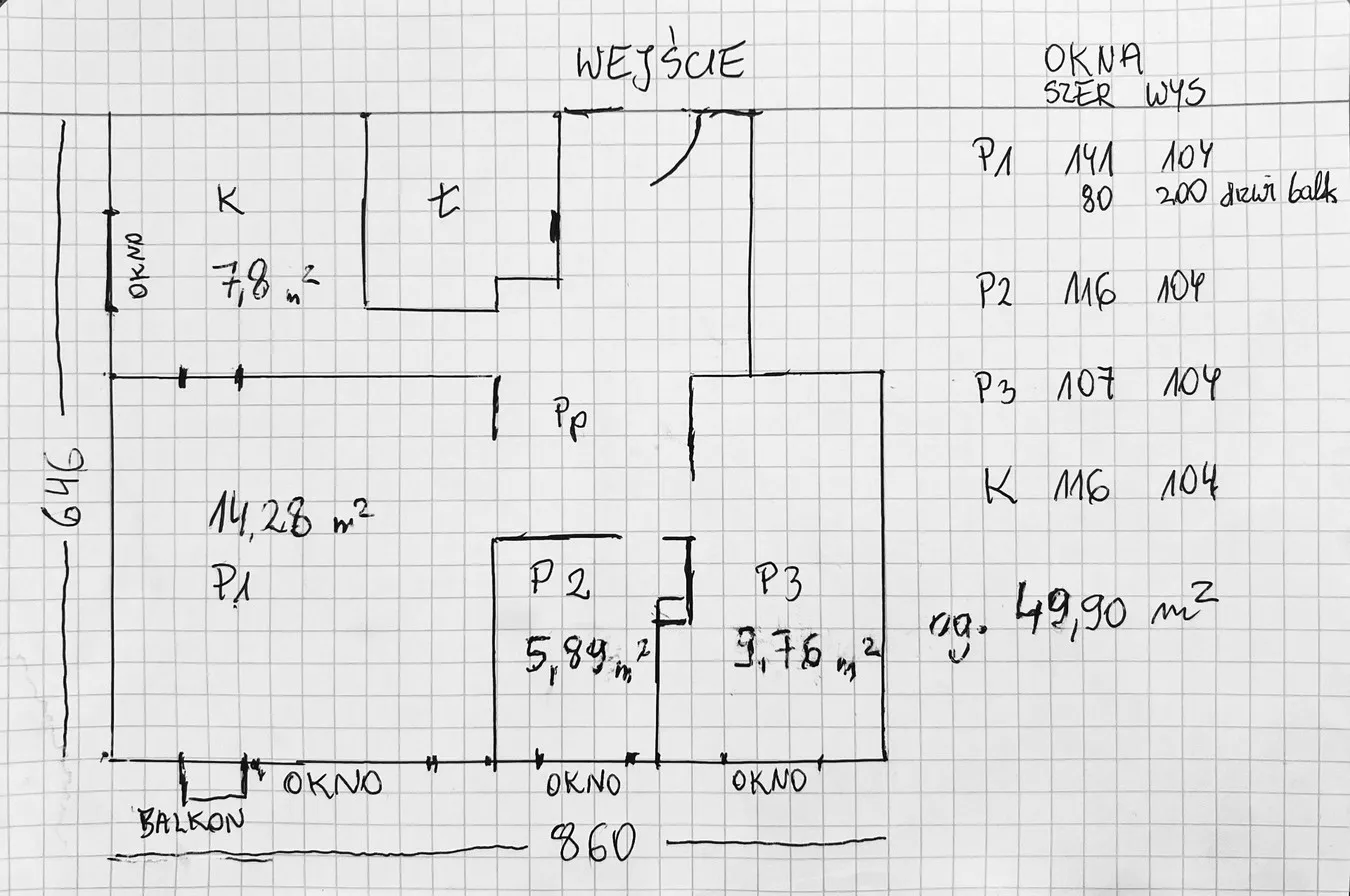 WEJŚCIE
OKNA
SZER WYS
P1 141 104
80 200 drzwi balk
P2 116 104
P3 107 104
K 116 104
og. 49,90 m²
K
7,8 m²
OKNO
Ł
Pp
646
14,28 m²
P1
P2
5,89 m²
P3
9,76 m²
BALKON
OKNO
OKNO
OKNO
860